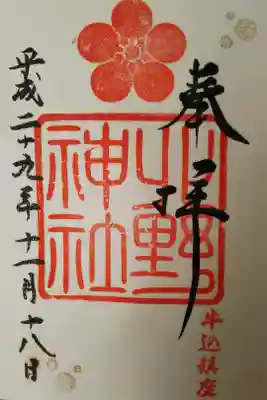 奉拝
牛込鎮座
北野
神社
平成二十九年十一月十八日